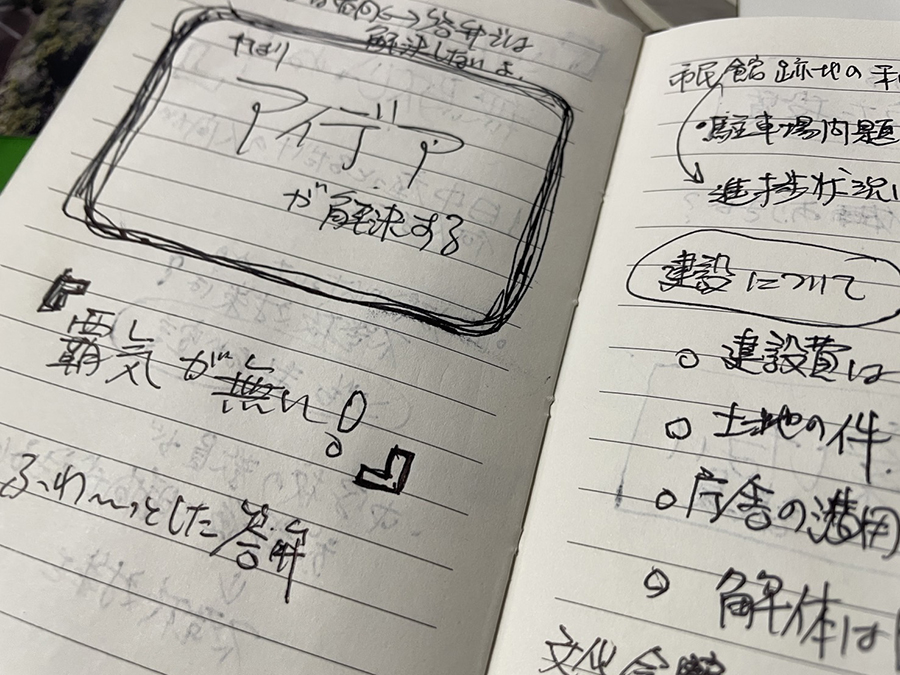 解決しないよ.
やはり
アイデア
が解決する
『覇気が無い!』
ふわ〜っとした答弁
市民館跡地の
・駐車場問題
進捗状況は
建設について
○ 建設費は
○ 土地の件.
○ 庁舎の活用
○ 解体は